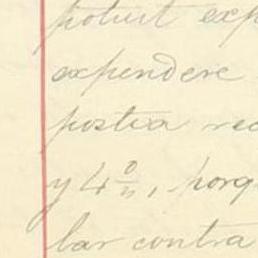 potuit exp
expendere
postea rec
y 4 0/n, porq
lar contra